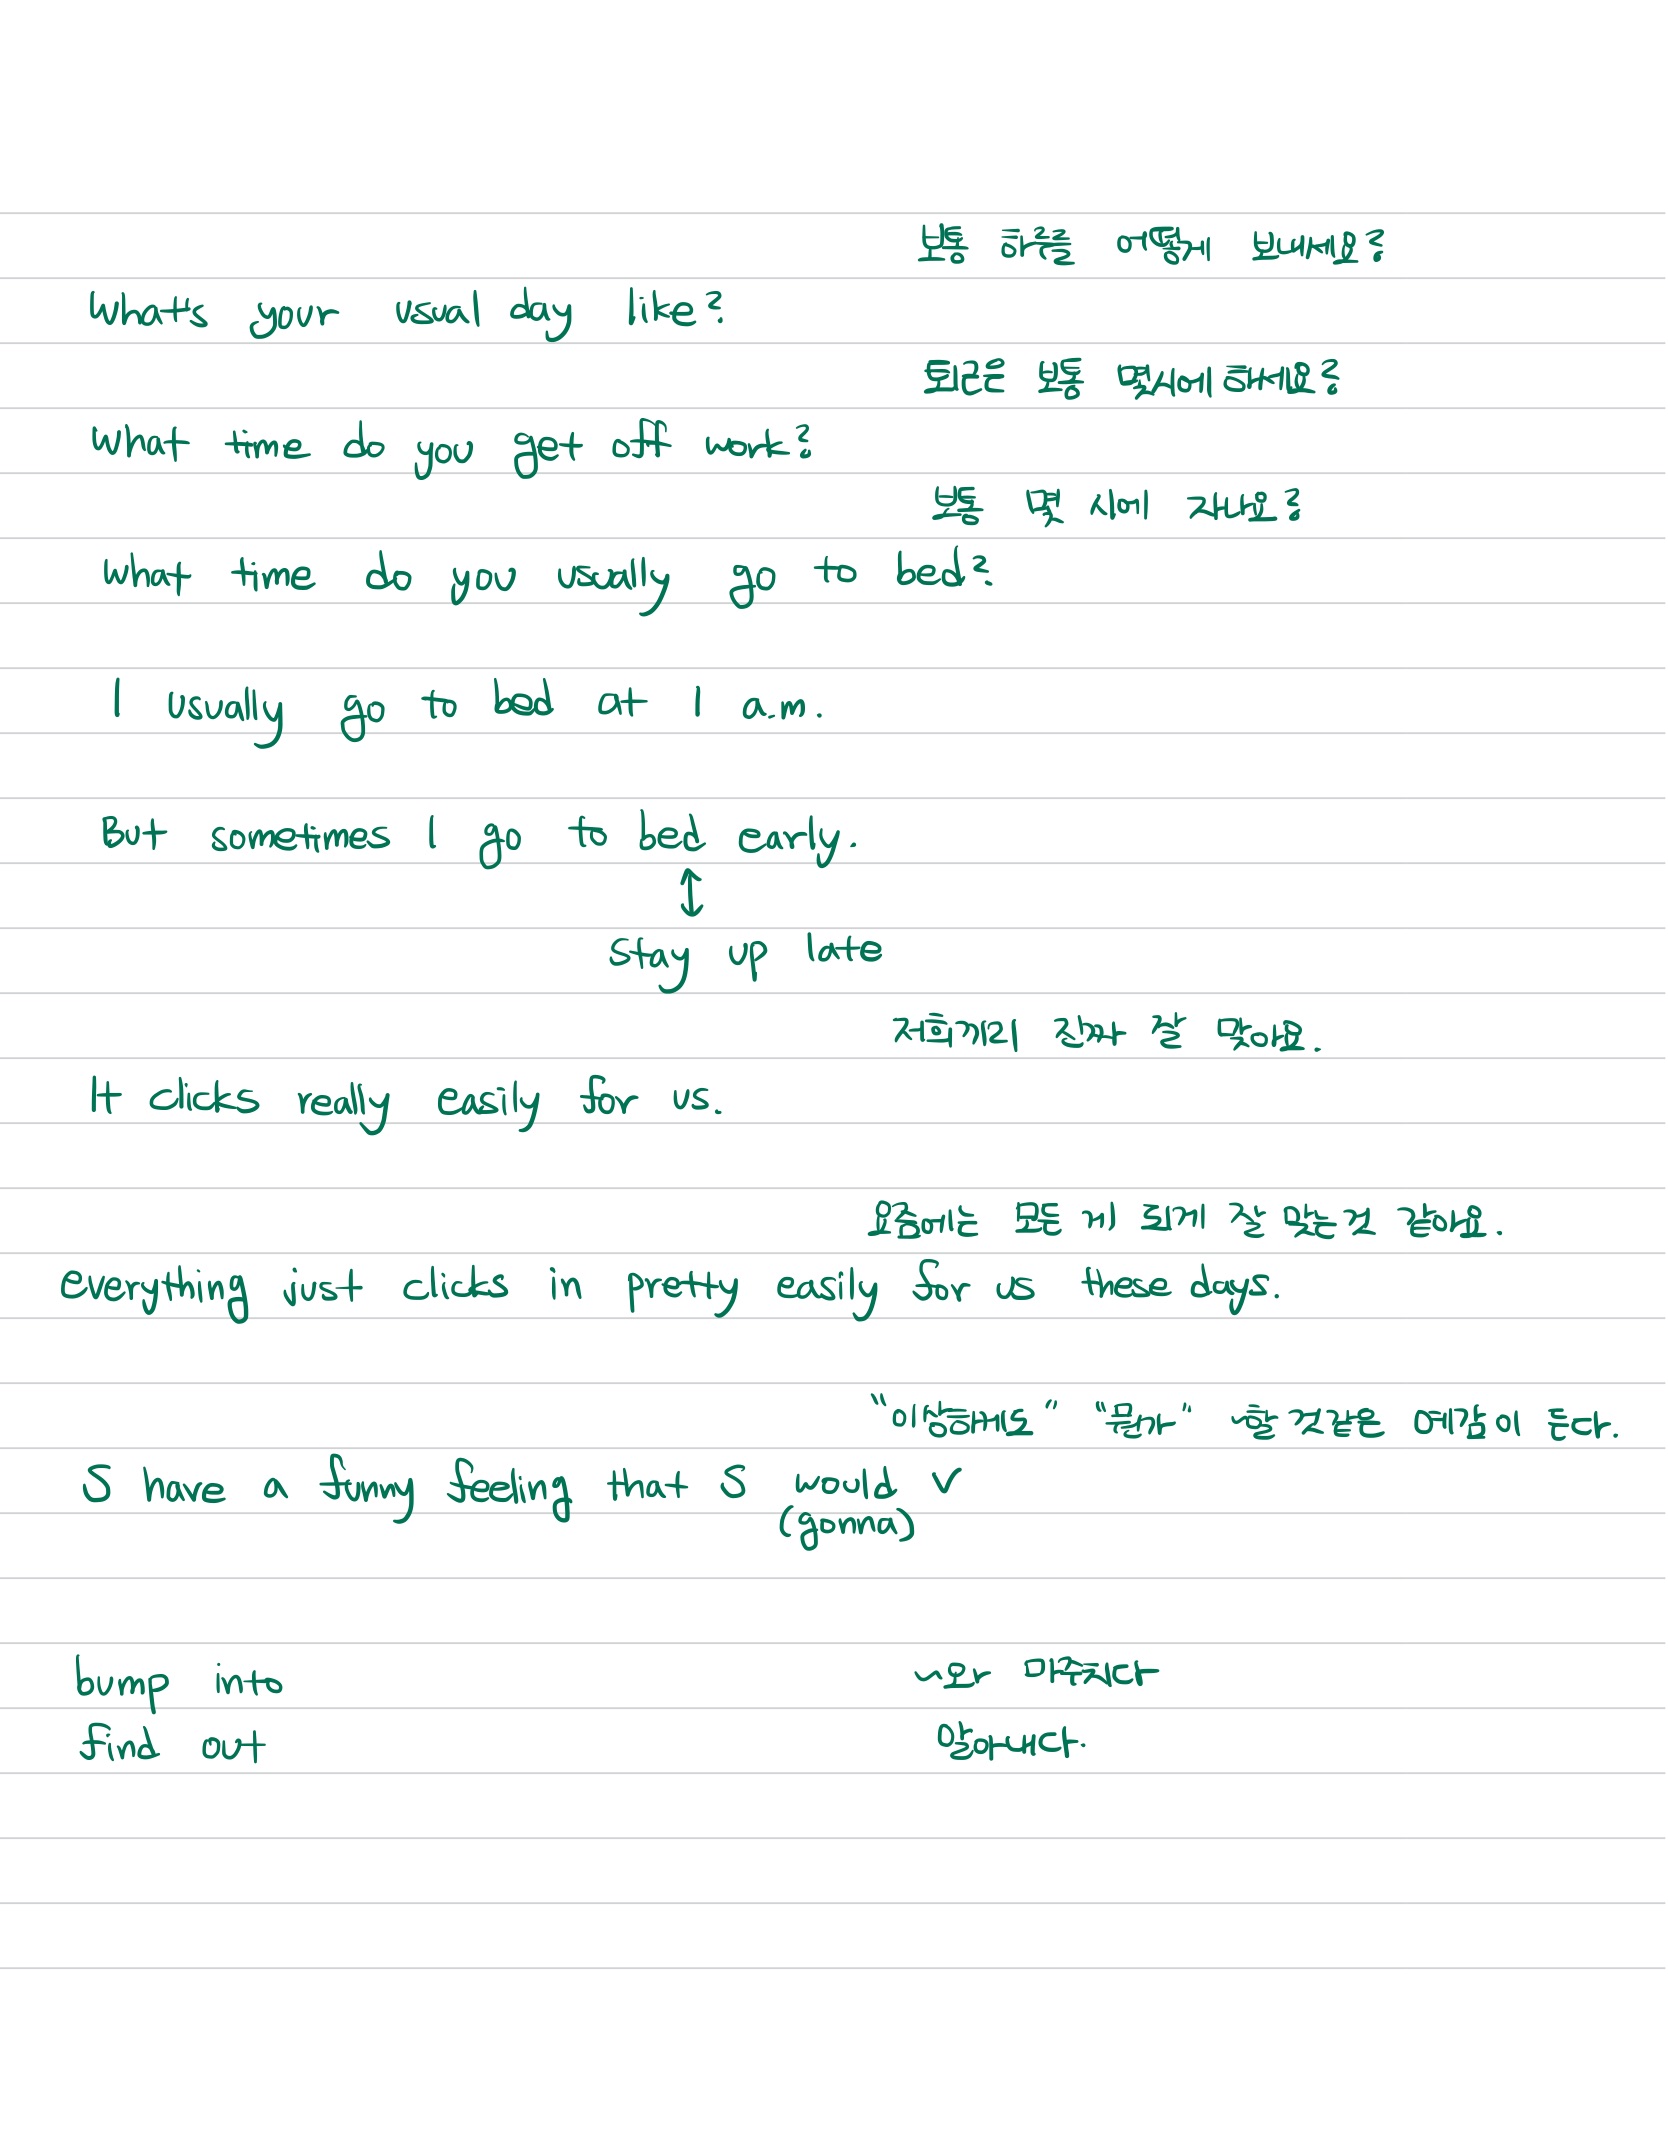 보통 하루를 어떻게 보내세요?
What's your usual day like?
퇴근은 보통 몇시에 하세요?
What time do you get off work?
보통 몇 시에 자나요?
What time do you usually go to bed?
I usually go to bed at 1 a.m.
But sometimes I go to bed early.
↕
stay up late
저희끼리 진짜 잘 맞아요.
It clicks really easily for us.
요즘에는 모든 게 되게 잘 맞는것 같아요.
everything just clicks in pretty easily for us these days.
"이상하게도" "뭔가" ~할 것같은 예감이 든다.
S have a funny feeling that S would V
(gonna)
bump into ~와 마주치다
find out 알아내다.